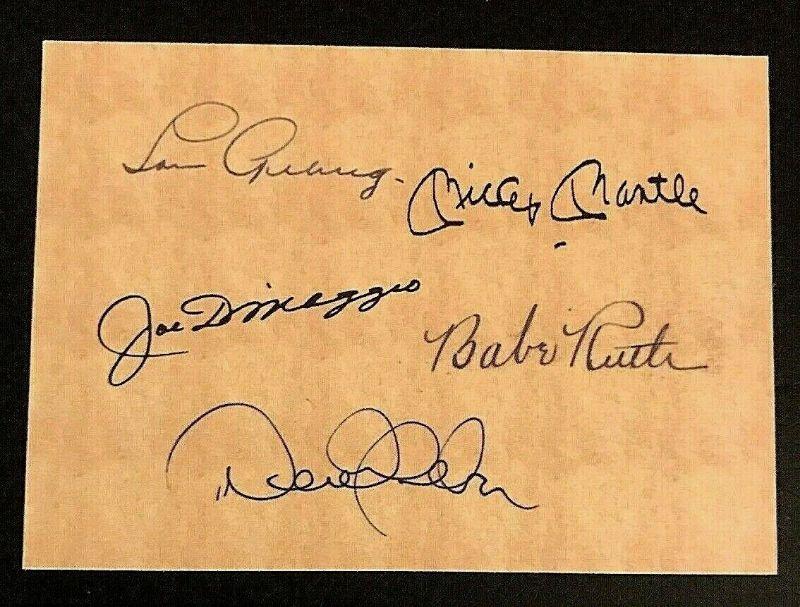 Lou Gehrig
Mickey Mantle
Joe DiMaggio
Babe Ruth
Derek Jeter